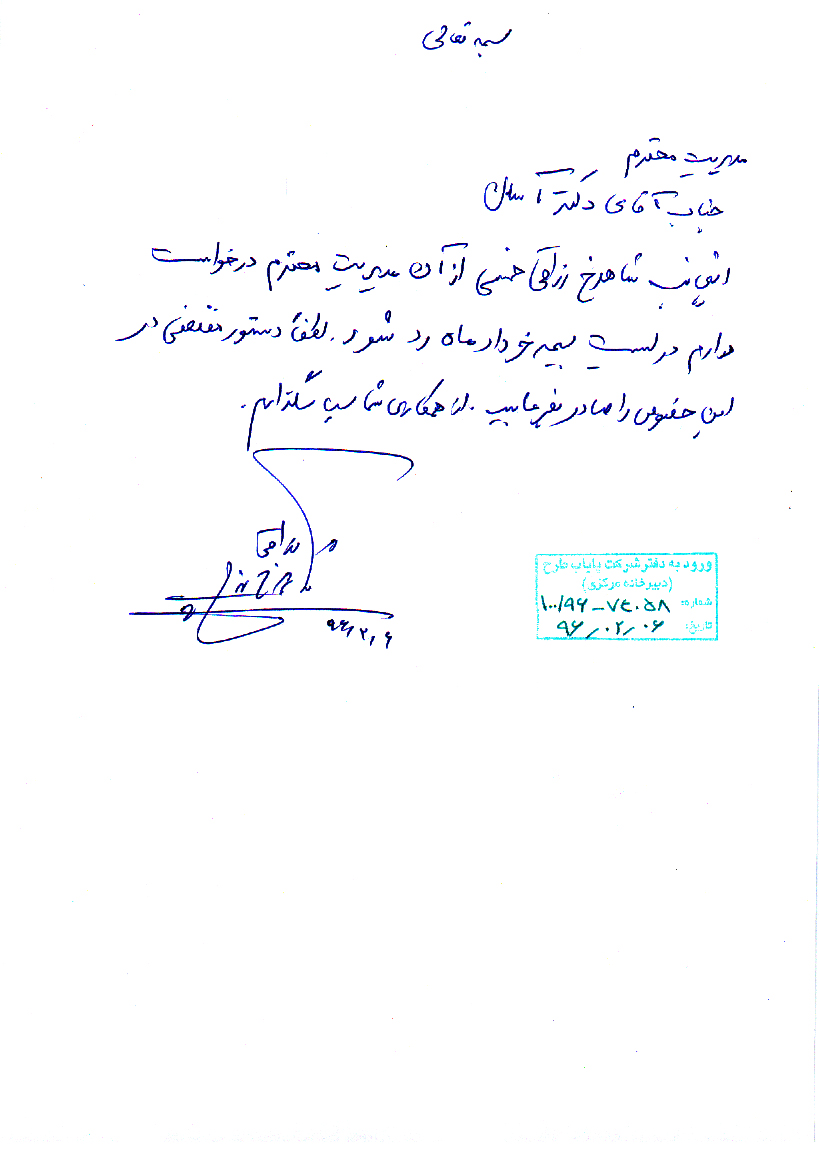 بسمه تعالی
مدیریت محترم
جناب آقای دکتر
اینجانب شاهرخ از آن مدیریت محترم درخواست
دارم در لیست بیمه خرداد ماه رد شود. لطفاً دستور مقتضی در
این خصوص را صادر بفرمایید. از همکاری شما سپاسگذارم.
۹۶٫۲٫۶
ورود به دفتر شرکت پایاب طرح
(دبیرخانه مرکزی)
شماره: ۱۰۰/۹۶-۷۴۰۵۸
تاریخ: ۹۶/۰۲/۰۶